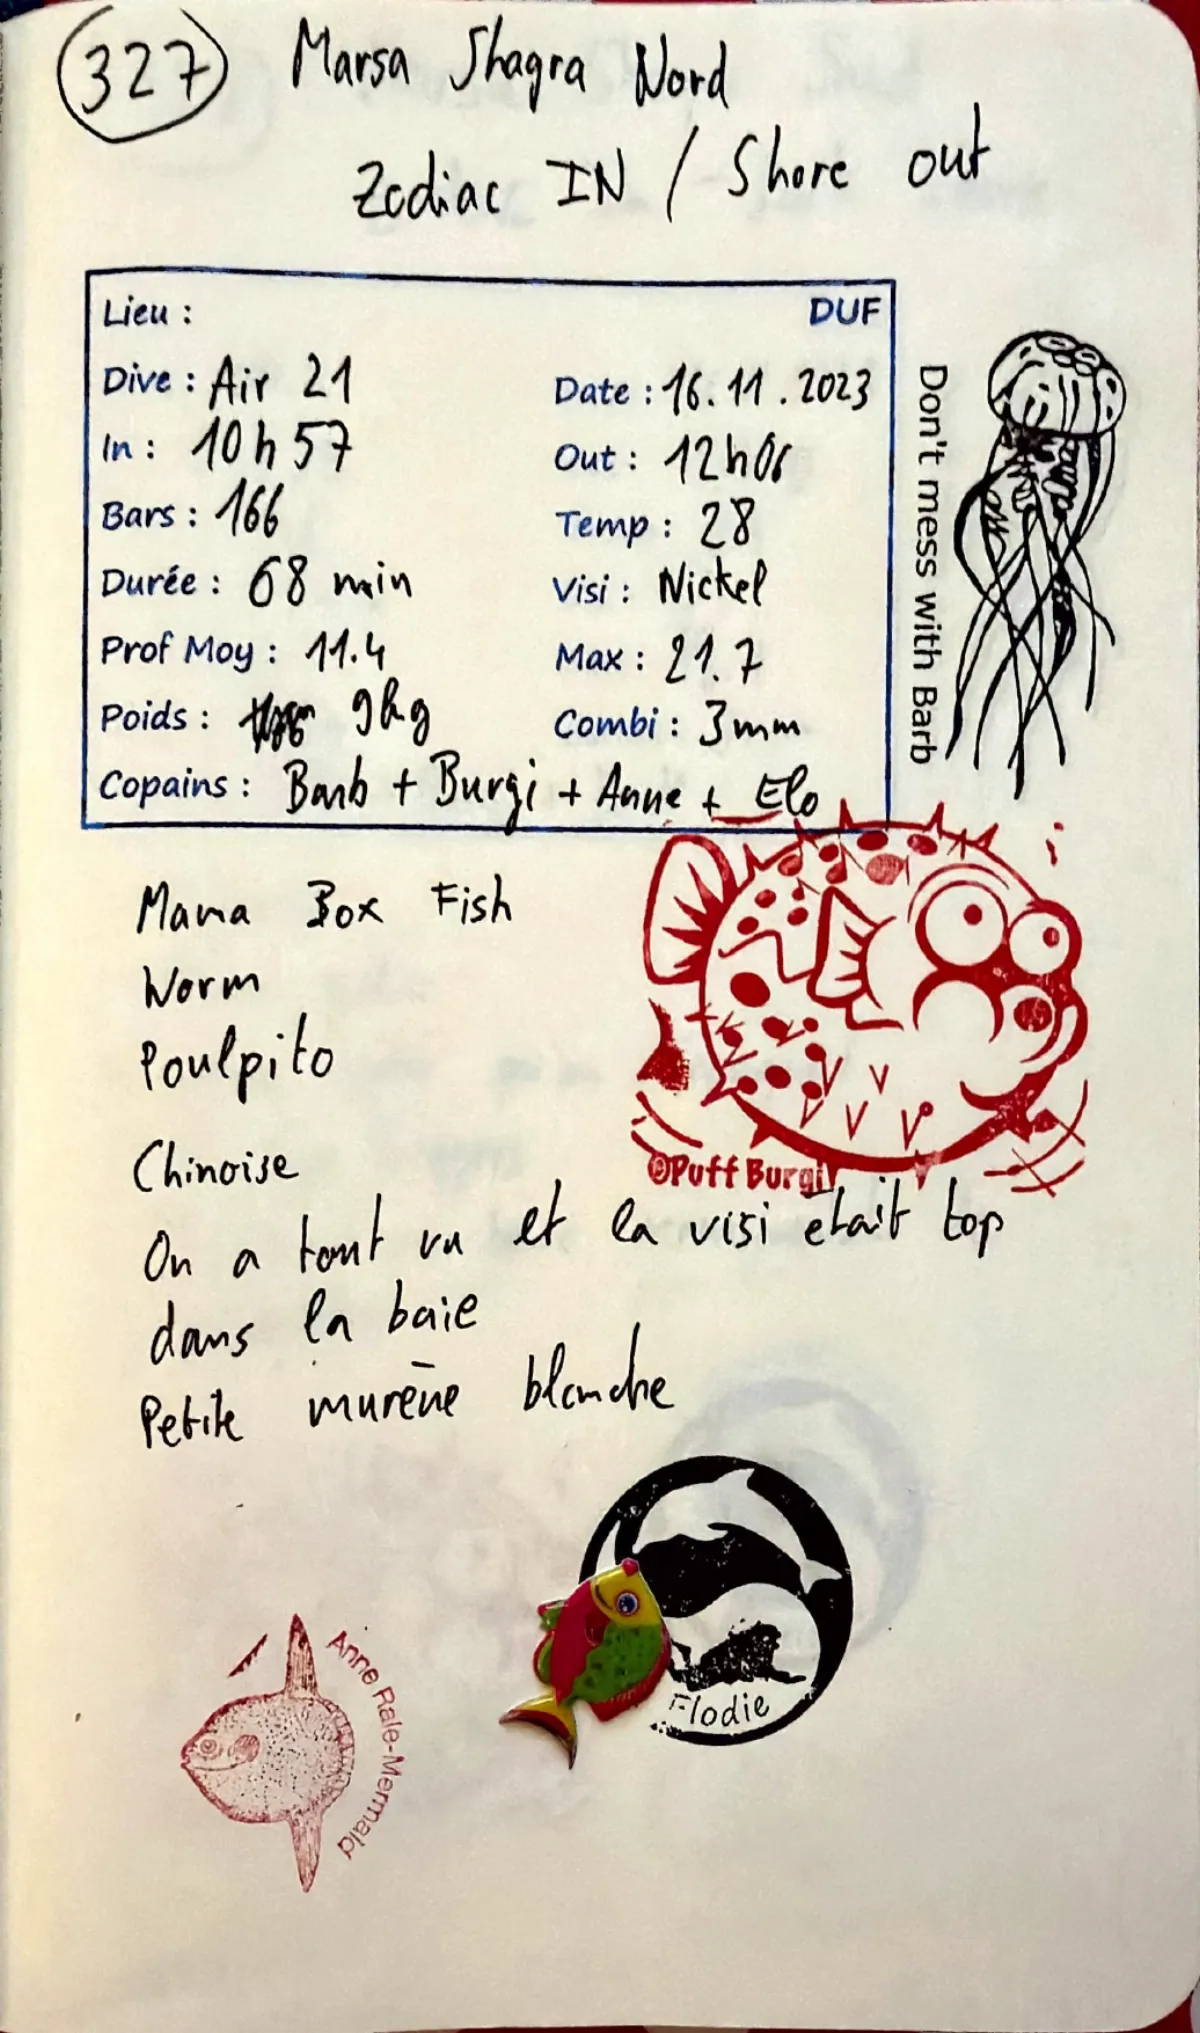 327 Marsa Shagra Nord
Zodiac IN / Shore out
Lieu : DUF
Dive : Air 21 Date : 16.11.2023
In : 10h57 Out : 12h06
Bars : 166 Temp : 28
Durée : 68 min Visi : Nickel
Prof Moy : 11.4 Max : 21.7
Poids : 9kg Combi : 3mm
Copains : Barb + Burgi + Anne + Elo
Don't mess with Barb
Mama Box Fish
Worm
Poulpito
©Puff Burgi
Chinoise
On a tout vu et la visi était top
dans la baie
Petite murène blanche
Elodie
Anne Rale-Mermaid